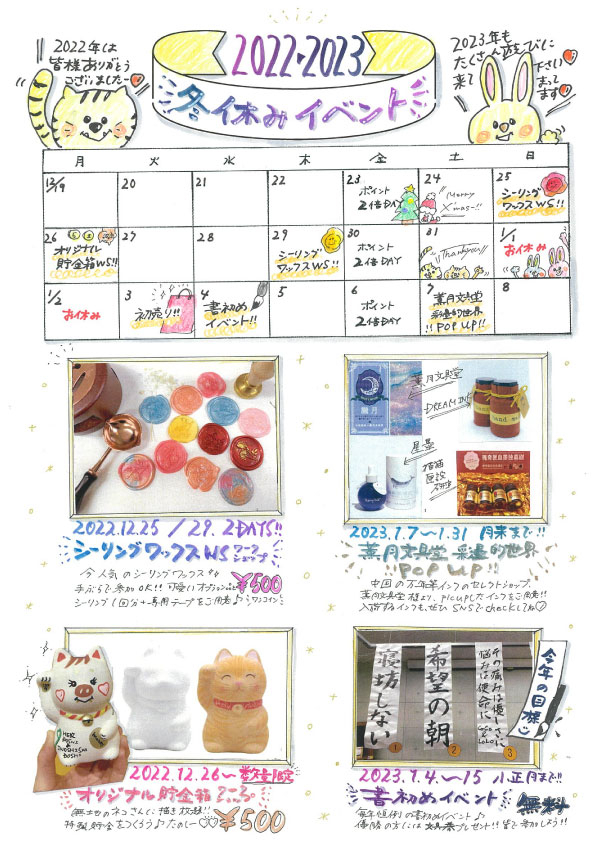 2022年は
皆様ありがとう
ございましたー
2022・2023
冬休みイベント
2023年も
たくさん遊びに
来て下さい
まって
ます
月 火 水 木 金 土 日
12/19 20 21 22 23 24 25
ポイント
2倍DAY
Merry
X'mas!!
シーリング
ワックスWS!!
26 27 28 29 30 31 1/1
オリジナル
貯金箱WS!!
シーリング
ワックスWS!!
ポイント
2倍DAY
Thankyou
お休み
1/2 3 4 5 6 7 8
お休み
初売り!!
書初め
イベント!!
ポイント
2倍DAY
薫月文具堂
彩墨的世界
!!POP UP!!
2022.12.25/29. 2DAYS!!
シーリングワックスWS
今人気のシーリングワックス
手ぶらで参加OK!! 可愛いオプション
シーリング1回分+専用テープをご用意♪
ワンコイン
¥500
薫月文具堂
DREAM INK
星墨
2023.1.7〜1.31 月末まで!!
薫月文具堂 彩墨的世界
POP UP!!
中国の万年筆インクのセレクトショップ。
薫月文具堂様より、pickupしたインクをご用意!!
入荷するインクも、ぜひSNSでcheckしてね
2022.12.26〜数量限定
オリジナル貯金箱
無地のネコさんに描き放題!!
特製貯金をつくろう♪たのしー♡♡
¥500
寝坊しない
1
希望の朝
2
その痛みは優しさに
悩みは使命に
3
今年の目標
2023.1.4.〜15 小正月まで!!
書初めイベント
無料
毎年恒例の書初めイベント♪
優勝の方には プレゼント!! 皆で参加しよう!!